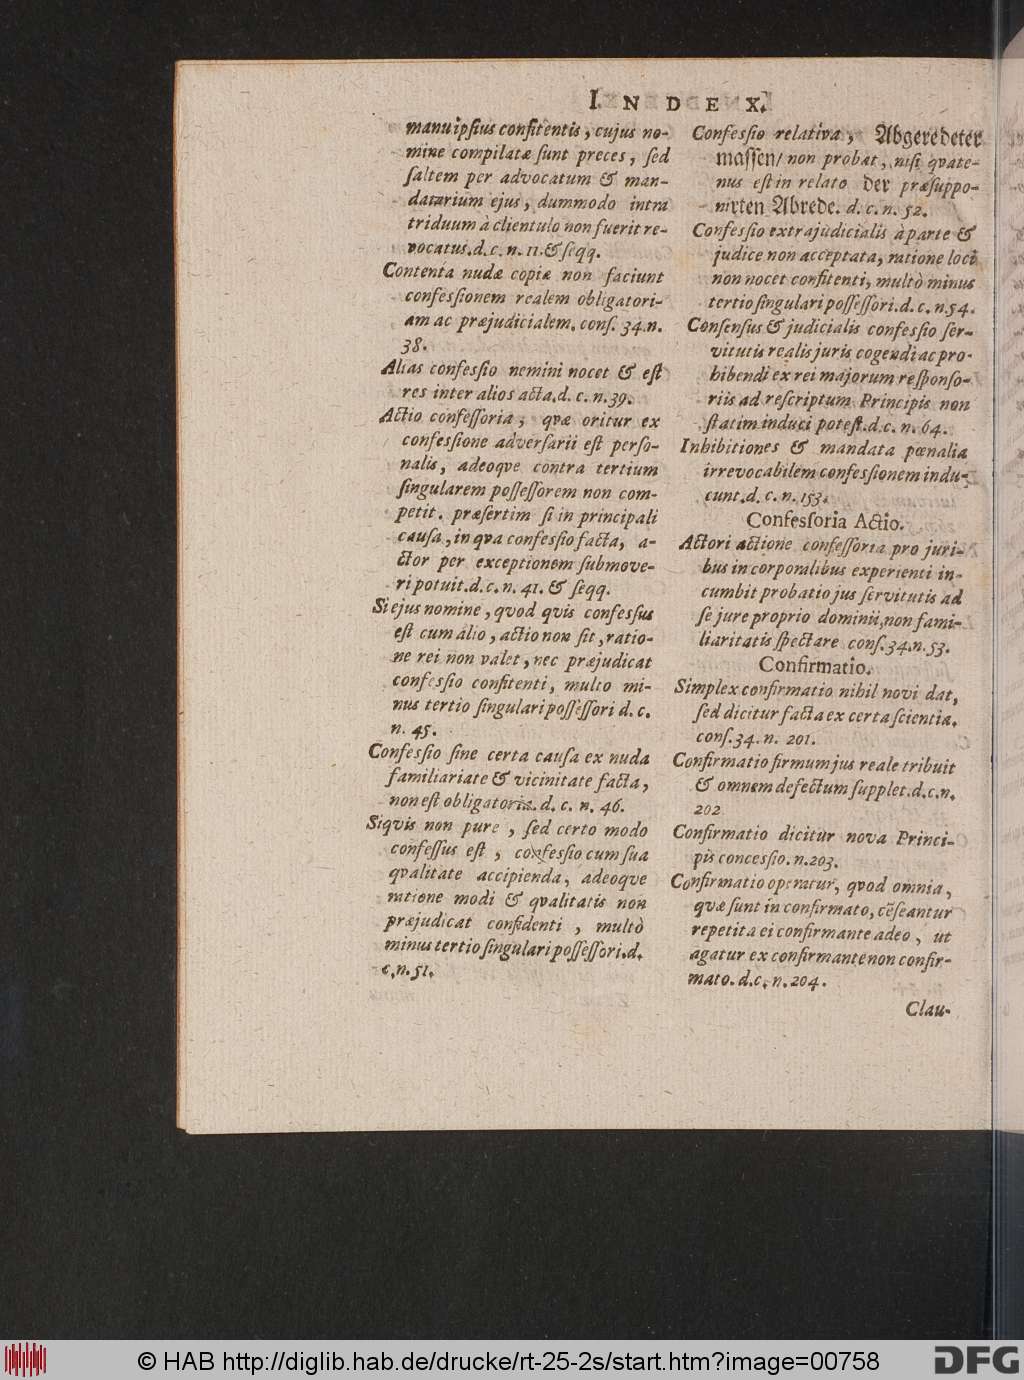 INDEX.
manu ipſius confitentis, cujus no-
mine compilatæ ſunt preces, ſed
ſaltem per advocatum & man-
datarium ejus, dummodo intra
triduum à clientulo non fuerit re-
vocatus. d. c. n. 11. & ſeqq.
Contenta nudæ copiæ non faciunt
confeſsionem realem obligatori-
am ac præjudicialem. conſ. 34. n.
38.
Alias confeſsio nemini nocet & eſt
res inter alios acta. d. c. n. 39.
Actio confeſſoria, quæ oritur ex
confeſsione adverſarii eſt perſo-
nalis, adeoqve contra tertium
ſingularem poſſeſſorem non com-
petit. præſertim ſi in principali
cauſa, in qva confeſsio facta, a-
ctor per exceptionem ſubmove-
ri potuit. d. c. n. 41. & ſeqq.
Si ejus nomine, qvod qvis confeſsus
eſt cum alio, actio non ſit, ratio-
ne rei non valet, nec præjudicat
confeſsio confitenti, multo mi-
nus tertio ſingulari poſſeſſori d. c.
n. 45.
Confeſsio ſine certa cauſa ex nuda
familiariate & vicinitate facta,
non eſt obligatoria. d. c. n. 46.
Siqvis non pure, ſed certo modo
confeſſus eſt, confeſsio cum ſua
qvalitate accipienda, adeoqve
ratione modi & qvalitatis non
præjudicat confidenti, multò
minus tertio ſingulari poſſeſſori. d.
c. n. 51.
Confeſsio relativa, Abgeredeter
maſſen/ non probat, niſi qvate-
nus eſt in relato der præſuppo-
nirten Abrede. d. c. n. 52.
Confeſsio extrajudicialis à parte &
judice non acceptata, ratione loci
non nocet confitenti, multò minus
tertio ſingulari poſſeſſori. d. c. n. 54.
Conſenſus & judicialis confeſsio ſer-
vitutis realis juris cogendi ac pro-
hibendi ex rei majorum reſponſo-
riis ad reſcriptum Principis non
ſtatim induci poteſt. d. c. n. 64.
Inhibitiones & mandata pœnalia
irrevocabilem confeſsionem indu-
cunt. d. c. n. 153.
Confesſoria Actio.
Actori actione confeſſoria pro juri-
bus in corporalibus experienti in-
cumbit probatio jus ſervitutis ad
ſe jure proprio dominii, non fami-
liaritatis ſpectare conſ. 34. n. 53.
Confirmatio.
Simplex confirmatio nihil novi dat,
ſed dicitur facta ex certa ſcientia.
conſ. 34. n. 201.
Confirmatio firmum jus reale tribuit
& omnem defectum ſupplet. d. c. n.
202
Confirmatio dicitur nova Princi-
pis conceſsio. n. 203.
Confirmatio operatur, qvod omnia,
qvæ ſunt in confirmato, cēſeantur
repetita ei confirmante adeo, ut
agatur ex confirmante non confir-
mato. d. c. n. 204.
Clau-
© HAB http://diglib.hab.de/drucke/rt-25-2s/start.htm?image=00758
DFG